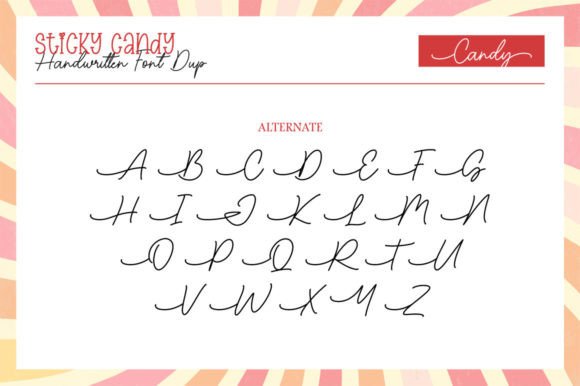 STiCKY CANDY
Handwritten Font Dup
Candy
ALTERNATE
A B C D E F G
H I J K L M N
O P Q R T U
V W X Y Z